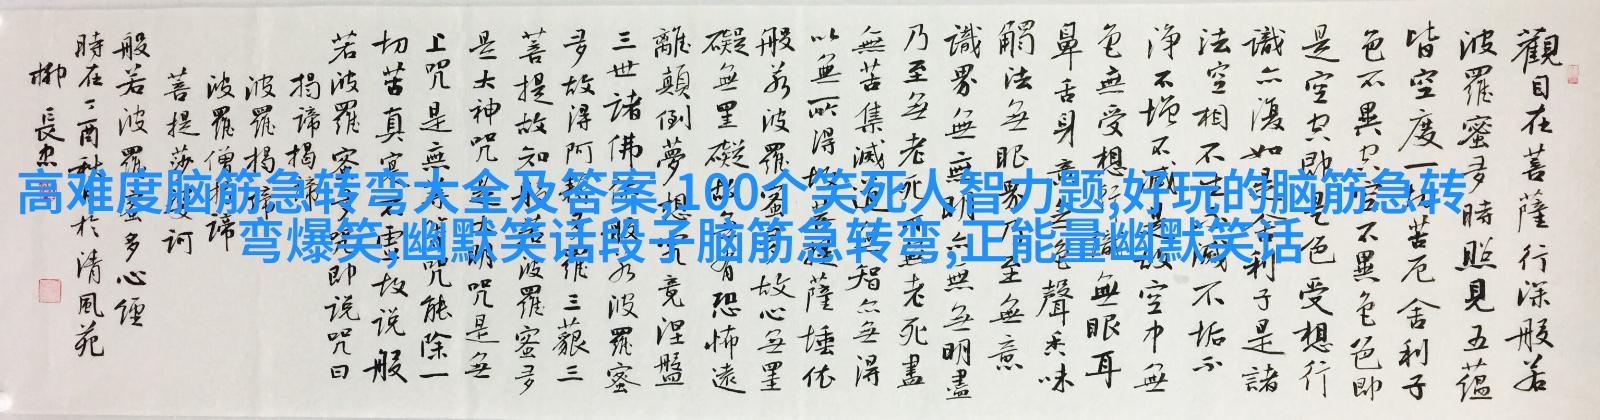 高难度脑筋急转弯大全及答案,100个笑死人智力题,好玩的脑筋急转
弯爆笑,幽默笑话段子脑筋急转弯,正能量幽默笑话
觀自在菩薩行深般若
波羅蜜多時照見五蘊
皆空度一切苦厄舍利子
色不異空空不異色色即
是空空即是色受想行
識亦復如是舍利子是諸
法空相不生不滅不垢不
淨不增不減是故空中無
色無受想行識無眼耳
鼻舌身意無色聲香味
觸法無眼界乃至無意
識界無無明亦無無明盡
乃至無老死亦無老死盡
無苦集滅道無智亦無得
以無所得故菩提薩埵依
般若波羅蜜多故心無罣
礙無罣礙故無有恐怖遠
離顛倒夢想究竟涅盤
三世諸佛依般若波羅蜜
多故得阿耨多羅三藐三
菩提故知般若波羅蜜多
是大神咒是大明咒是無
上咒是無等等咒能除一
切苦真實不虛故說般
若波羅蜜多咒即說咒曰
揭諦揭諦
波羅揭諦
波羅僧揭諦
菩提薩婆訶
般若波羅蜜多心經
時在丁酉秋月於清風苑
柳長忠